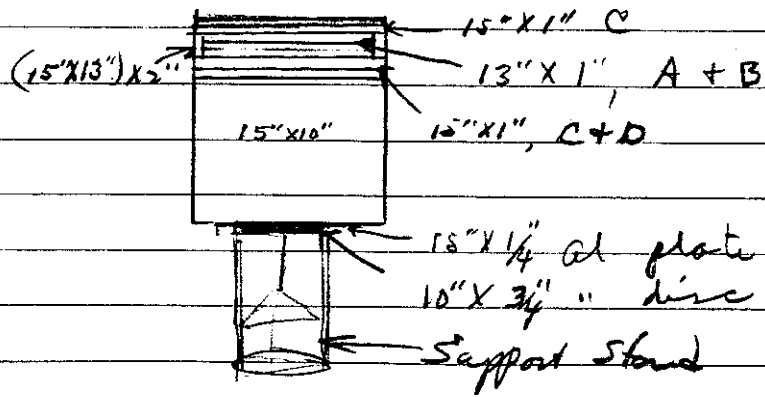 15" X 1" C
(15"X13") X 2"
13" X 1", A + B
15"X10"
15"X1", C+D
15" X 1/4" al plate
10" X 3/4" " disc
Support Stand